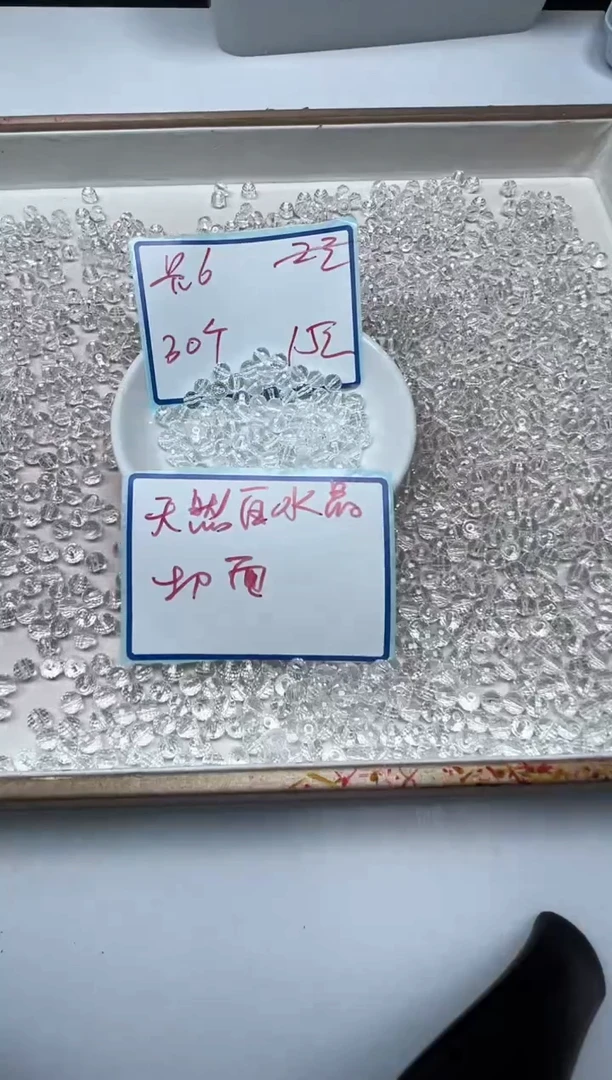 6 2元
30个 15元
天然白水晶
切面